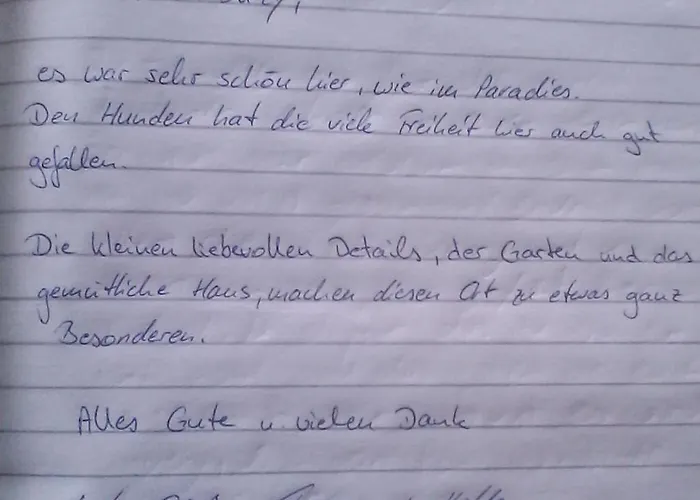 es war sehr schön hier, wie im Paradies.
Den Hunden hat die viele Freiheit hier auch gut
gefallen.
Die kleinen liebevollen Details, der Garten und das
gemütliche Haus, machen diesen Ort zu etwas ganz
Besonderen.
Alles Gute u vielen Dank